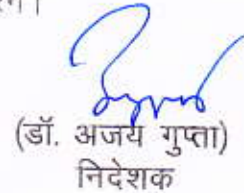 (डॉ. अजय गुप्ता)
निदेशक